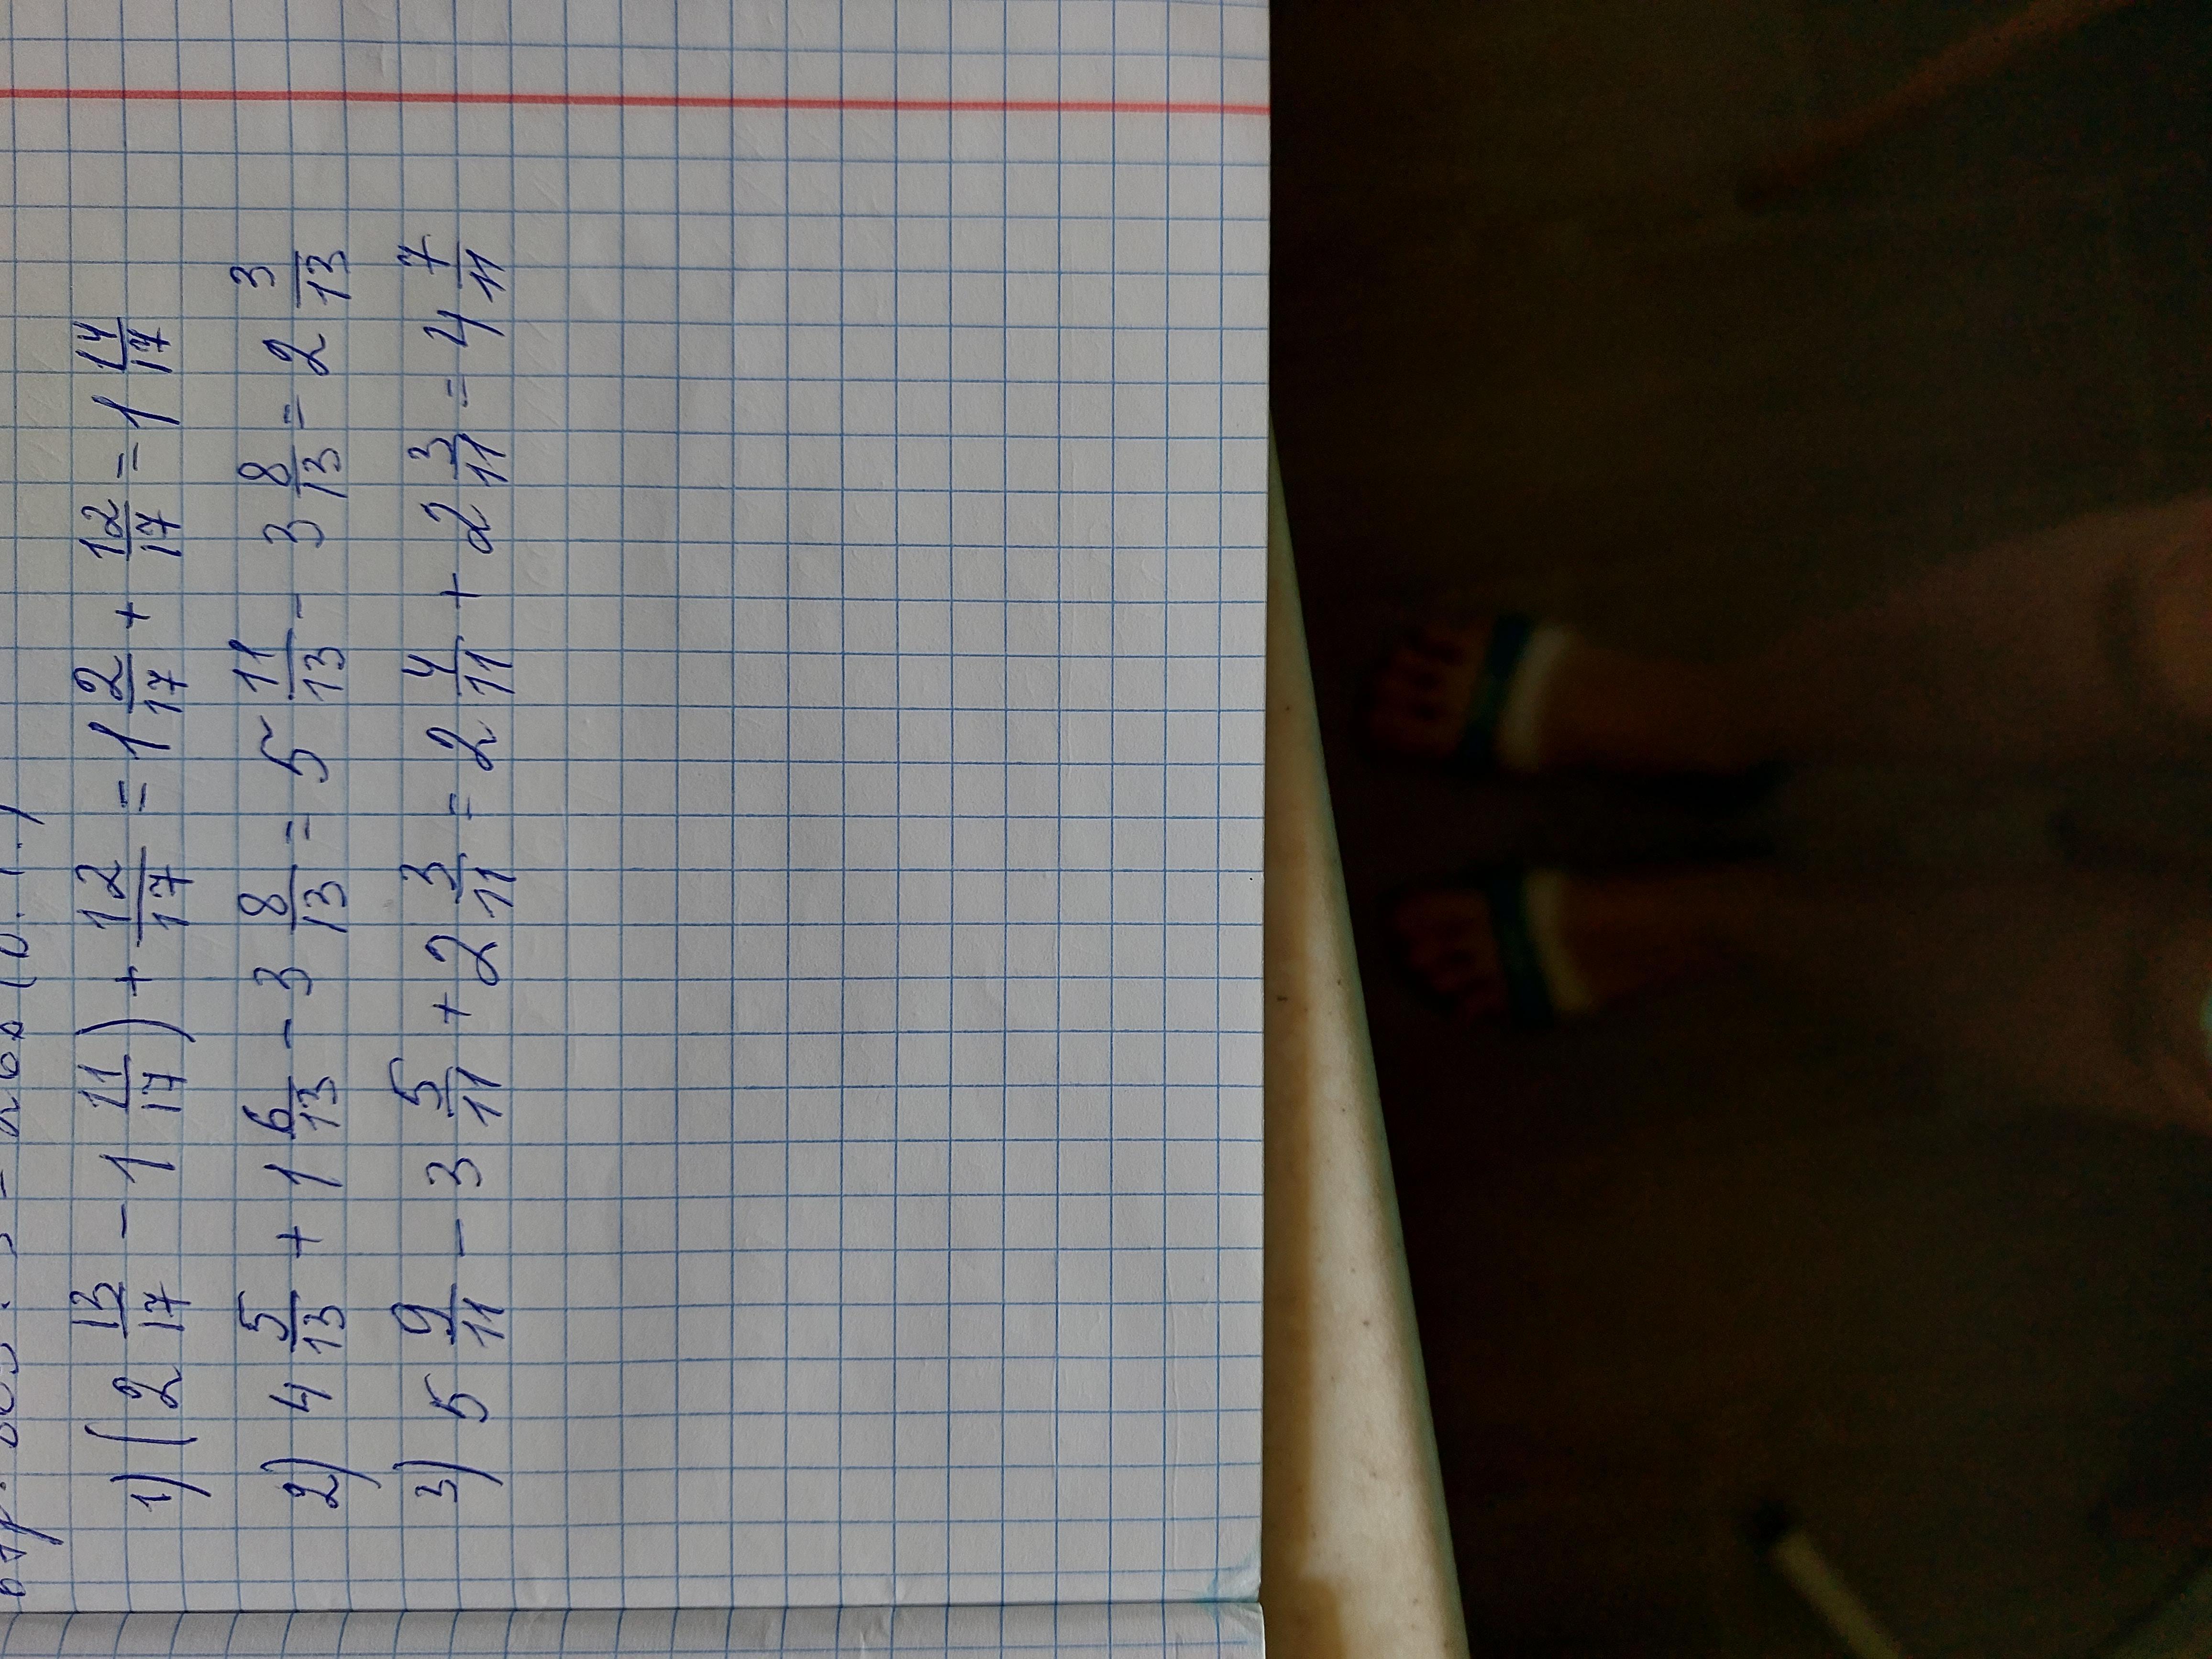 1) (2 13/17 - 1 11/17) + 12/17 = 1 2/17 + 12/17 = 1 14/17
2) 4 5/13 + 1 6/13 - 3 8/13 = 5 11/13 - 3 8/13 = 2 3/13
3) 5 9/11 - 3 5/11 + 2 3/11 = 2 4/11 + 2 3/11 = 4 7/11